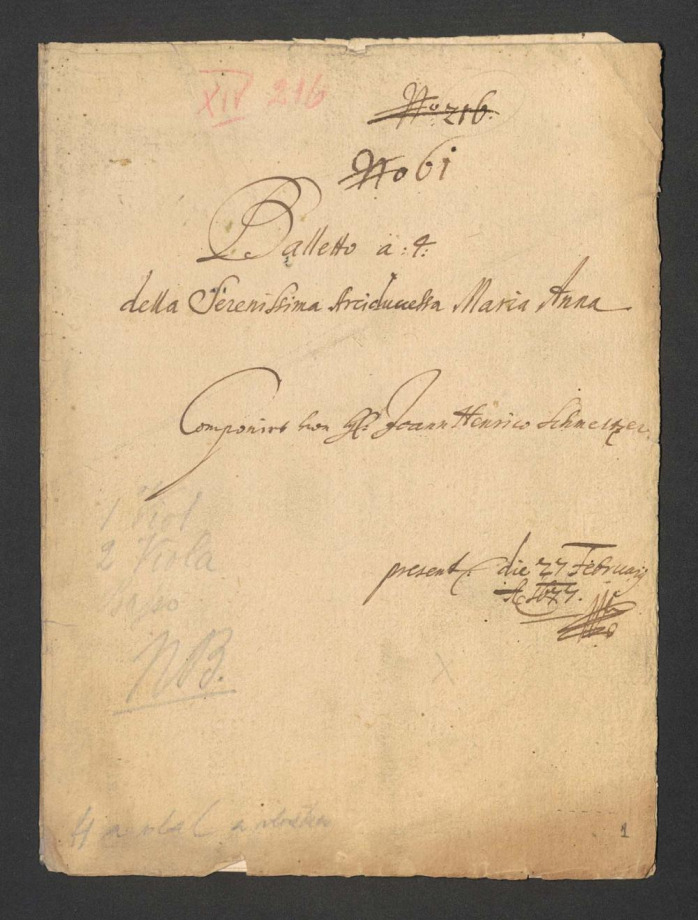 XIV 216
No 216.
No 61
Balletto à :4:
della Serenissima Arciducessa Maria Anna
Componirt von H: Joann Henrico Schmelzer.
1 Viol
2 Viola
Basso
present: die 27 February
A 1677.
NB.
1